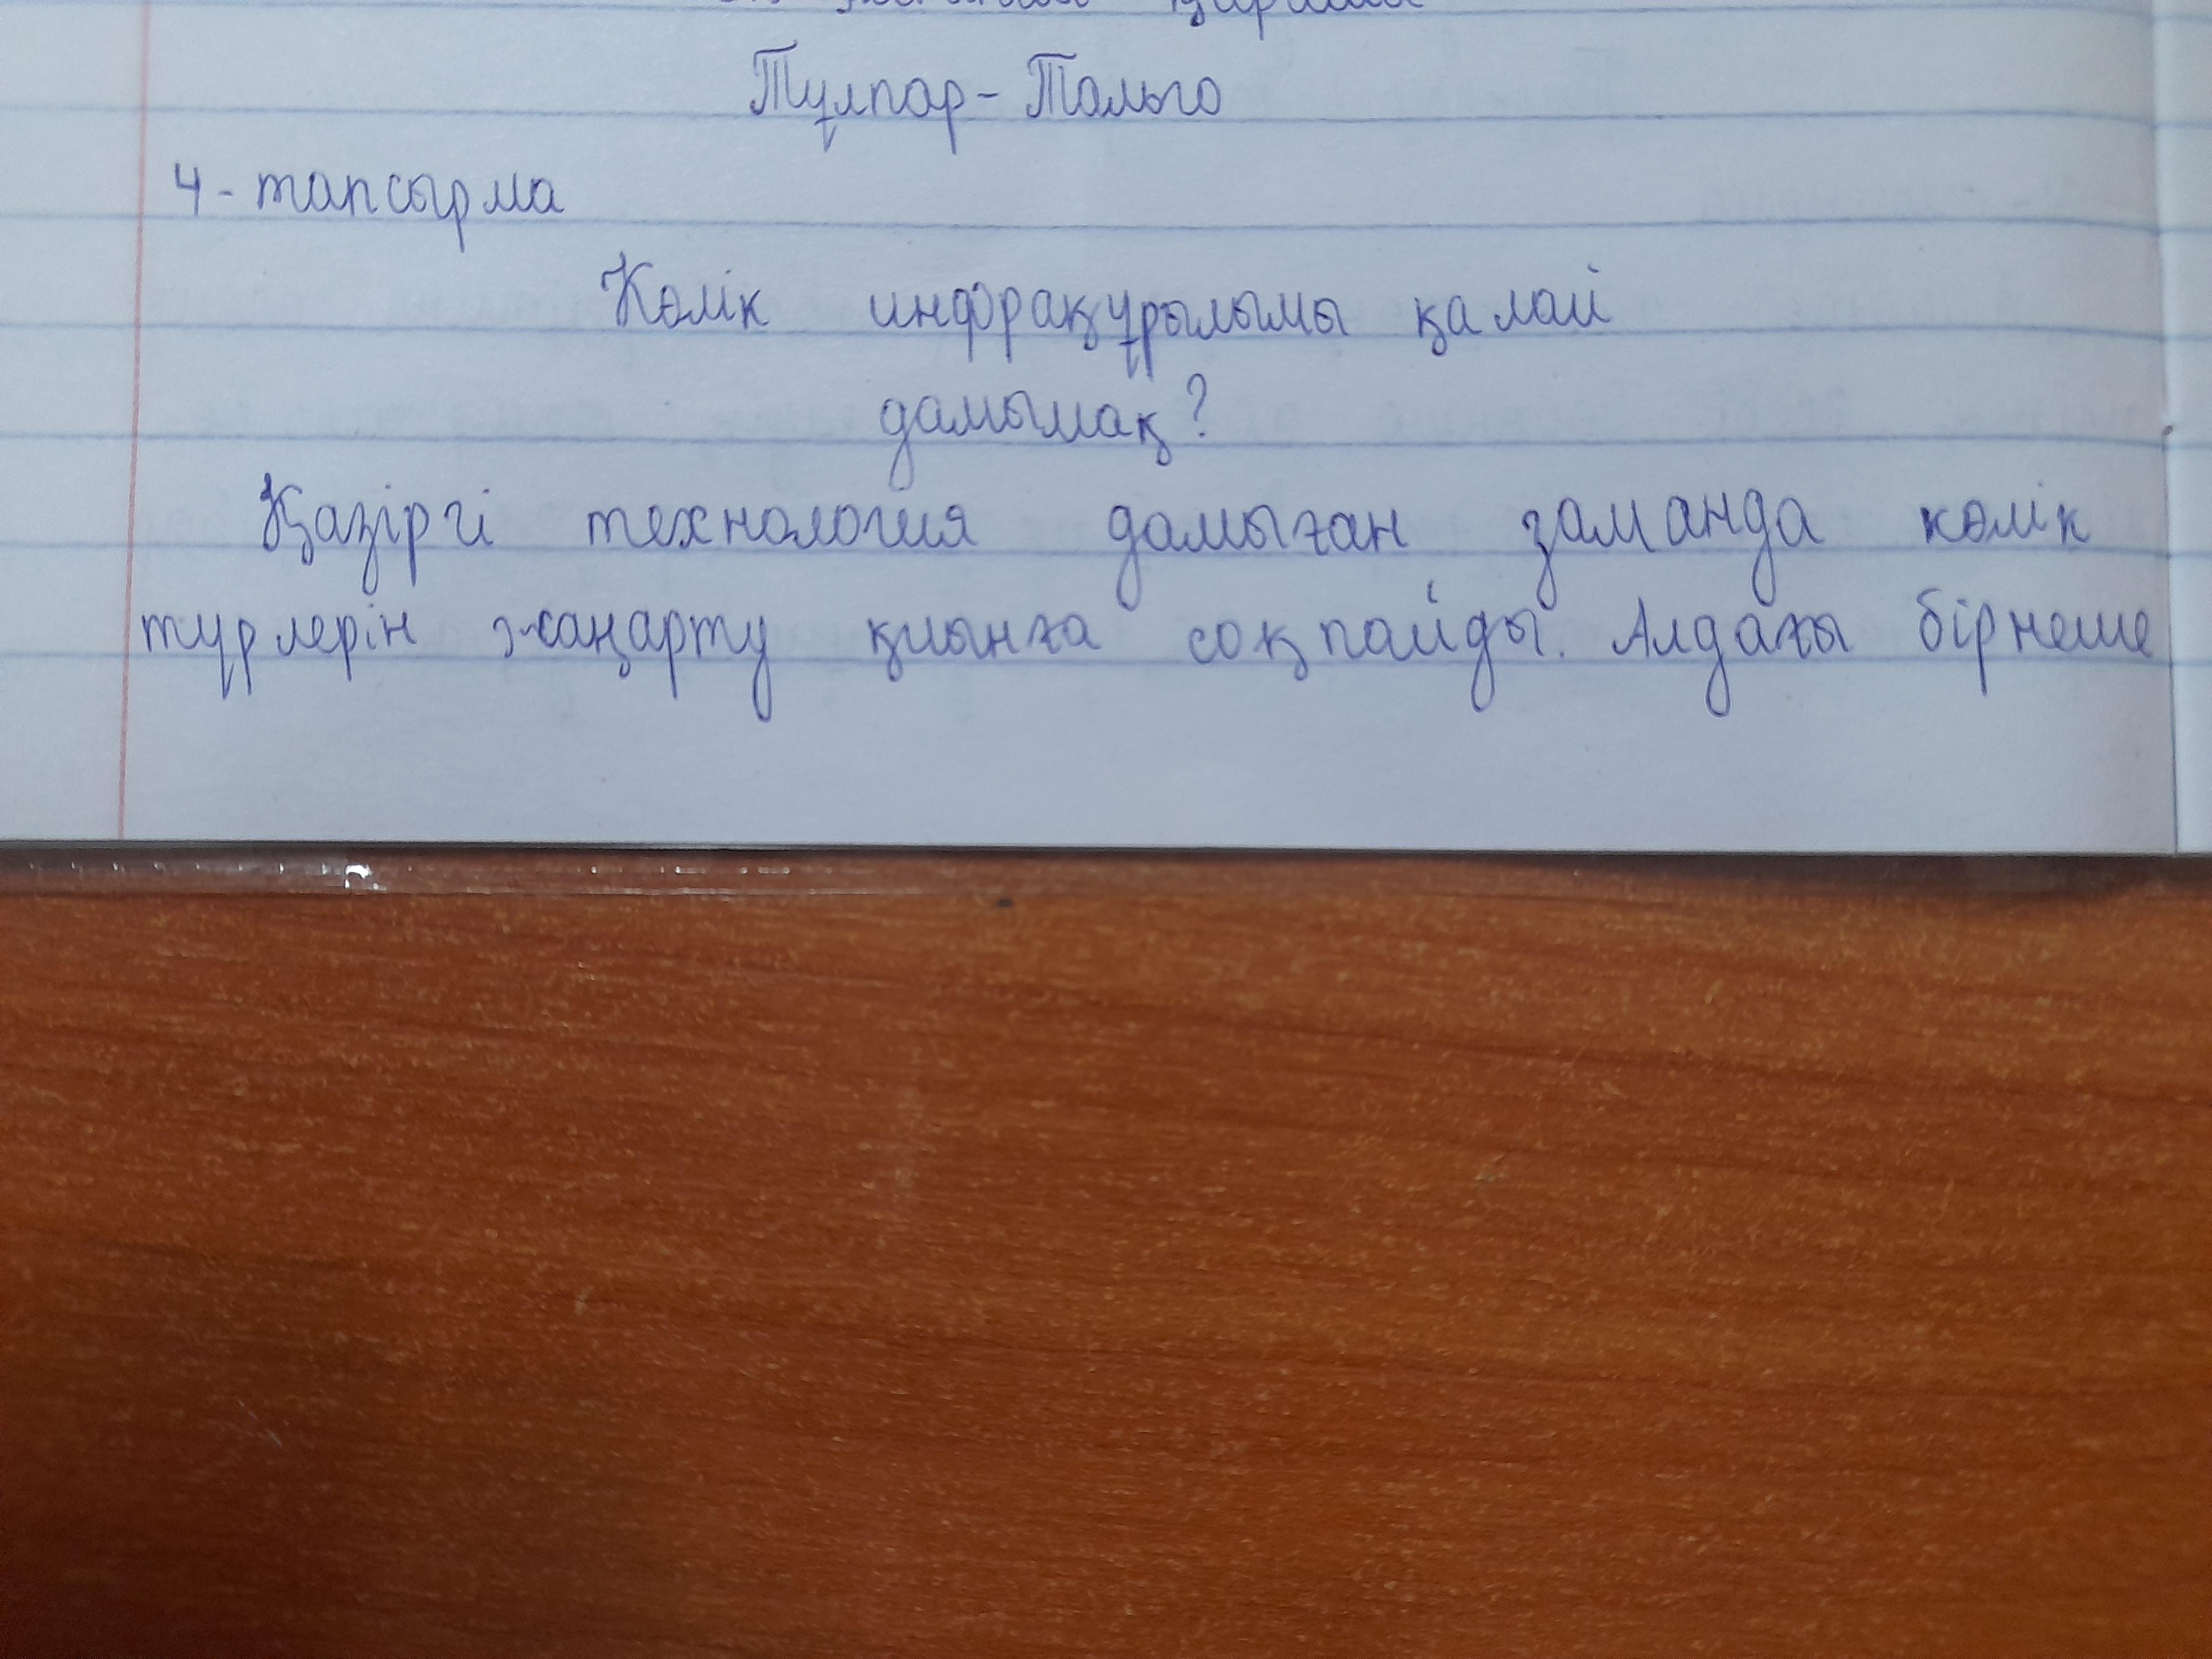 Тұлпар-Тальго
4-тапсырма
Көлік инфрақұрылымы қалай
дамымақ?
Қазіргі технология дамыған заманда көлік
түрлерін жаңарту қиынға соқпайды. Алдағы бірнеше